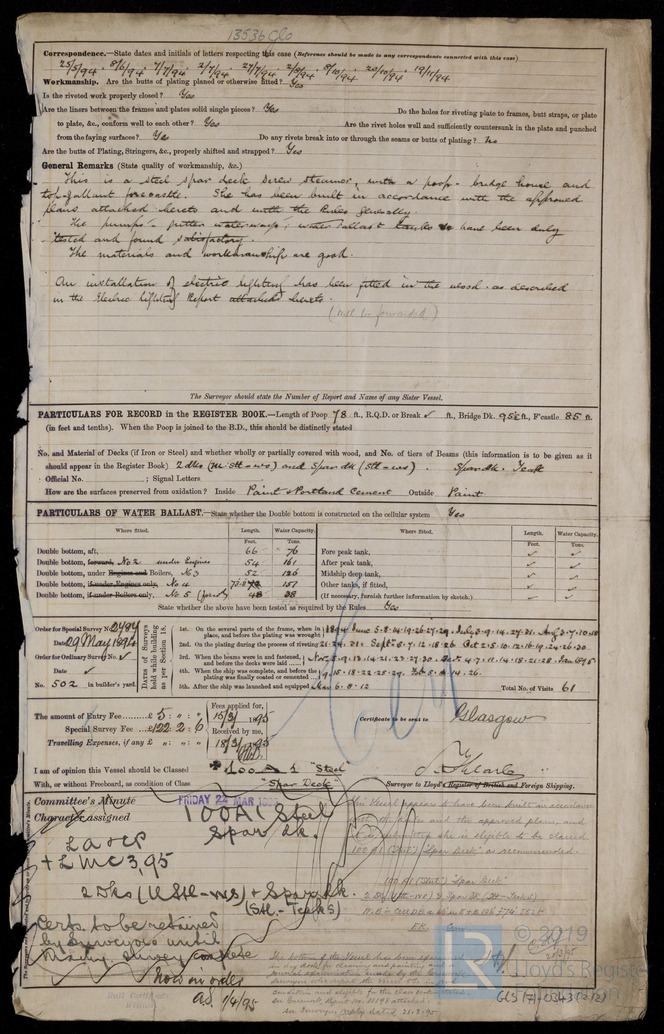 13536 Glo
Correspondence.—State dates and initials of letters respecting this case (Reference should be made in any correspondence connected with this case)
25/5/94. 8/6/94. 7/7/94 2/7/94. 27/7/94 2/8/94. 8/10/94. 20/10/94 19/11/94
Workmanship. Are the butts of plating planed or otherwise fitted? Yes
Is the riveted work properly closed? Yes
Are the liners between the frames and plates solid single pieces? Yes Do the holes for riveting plate to frames, butt straps, or plate
to plate, &c., conform well to each other? Yes Are the rivet holes well and sufficiently countersunk in the plate and punched
from the faying surfaces? Yes Do any rivets break into or through the seams or butts of plating? No
Are the butts of Plating, Stringers, &c., properly shifted and strapped? Yes
General Remarks (State quality of workmanship, &c.)
This is a steel spar deck screw steamer, with a poop - bridge house and
topgallant forecastle. She has been built in accordance with the approved
plans attached hereto and with the Rules generally.
The pumps - gutter waterways, water ballast tanks have been duly
tested and found satisfactory.
The materials and workmanship are good.
An installation of electric lighting has been fitted in the vessel as described
in the Electric Lighting Report attached hereto.
(will be forwarded)
The Surveyor should state the Number of Report and Name of any Sister Vessel.
PARTICULARS FOR RECORD in the REGISTER BOOK.—Length of Poop 78 ft., R.Q.D. or Break ✓ ft., Bridge Dk. 95 ft., F'castle 85 ft.
(in feet and tenths). When the Poop is joined to the B.D., this should be distinctly stated
No. and Material of Decks (if Iron or Steel) and whether wholly or partially covered with wood, and No. of tiers of Beams (this information is to be given as it
should appear in the Register Book) 2 dks and Spar dk. Spar dk. Teak
Official No. ; Signal Letters
How are the surfaces preserved from oxidation? Inside Paint & Portland Cement Outside Paint
PARTICULARS OF WATER BALLAST.—State whether the Double bottom is constructed on the cellular system Yes
Where fitted. Length. Water Capacity. Where fitted. Length. Water Capacity.
Feet. Tons. Feet. Tons.
Double bottom, aft, 66 76 Fore peak tank, ✓ ✓
Double bottom, forward, No 2 under Engines 54 161 After peak tank, ✓ ✓
Double bottom, under Engines and Boilers, No 3 52 126 Midship deep tank, ✓ ✓
Double bottom, if under Engines only, No 4 157 Other tanks, if fitted, ✓ ✓
Double bottom, if under Boilers only, No 5 (for'd) 48 38 (If necessary, furnish further information by sketch.) ✓ ✓
State whether the above have been tested as required by the Rules Yes
Order for Special Survey No. 2484
Date 29 May 1894
Order for Ordinary Survey No. ✓
Date ✓
No. 502 in builder's yard.
DATES of Surveys held while building as per Section 18.
1st. On the several parts of the frame, when in place, and before the plating was wrought 1894 June 5.8.14.19.26.27.29. July 3.9.14.27.31. Aug 3.7.10.18
2nd. On the plating during the process of riveting 21.24.31. Sept 5.7.12.18.26 Oct 2.5.10.12.16.19.24.26.30
3rd. When the beams were in and fastened, and before the decks were laid Nov 2.5.9.13.14.21.23.27.30. Dec 4.7.11.14.18.21.28. Jan 1895
4th. When the ship was complete, and before the plating was finally coated or cemented 9.15.18.22.25.29. Feb 5.8.14.26.
5th. After the vessel was launched and equipped Mar 6.8.12 Total No. of Visits 61
The amount of Entry Fee £ 5 : " : " Fees applied for, 15/3/1895
Special Survey Fee £122 : 2 : 6 Received by me,
Travelling Expenses, if any £ " : " : " 18/3/1895
Certificate to be sent to Glasgow
I am of opinion this Vessel should be Classed 100 A 1 "Steel"
With, or without Freeboard, as condition of Class "Spar Deck"
Surveyor to Lloyd's Register of British and Foreign Shipping.
Committee's Minute FRIDAY 22 MAR
Character assigned 100A1 Steel
Spar Dk.
LA & CP
+ LMC 3,95
2 Dks (U Stl-ws) + Spar dk.
(Stl.-Teaks)
Certs to be retained
by Surveyors until
survey complete
Now in order
A.S. 1/4/95
This Vessel appears to have been built in accordance
with the Rules and the approved plans, and
it is submitted she is eligible to be classed
100 A1 (Steel) "Spar Deck" as recommended.
100 A1 (Steel) "Spar Deck"
© 2019
Lloyd's Register
Foundation